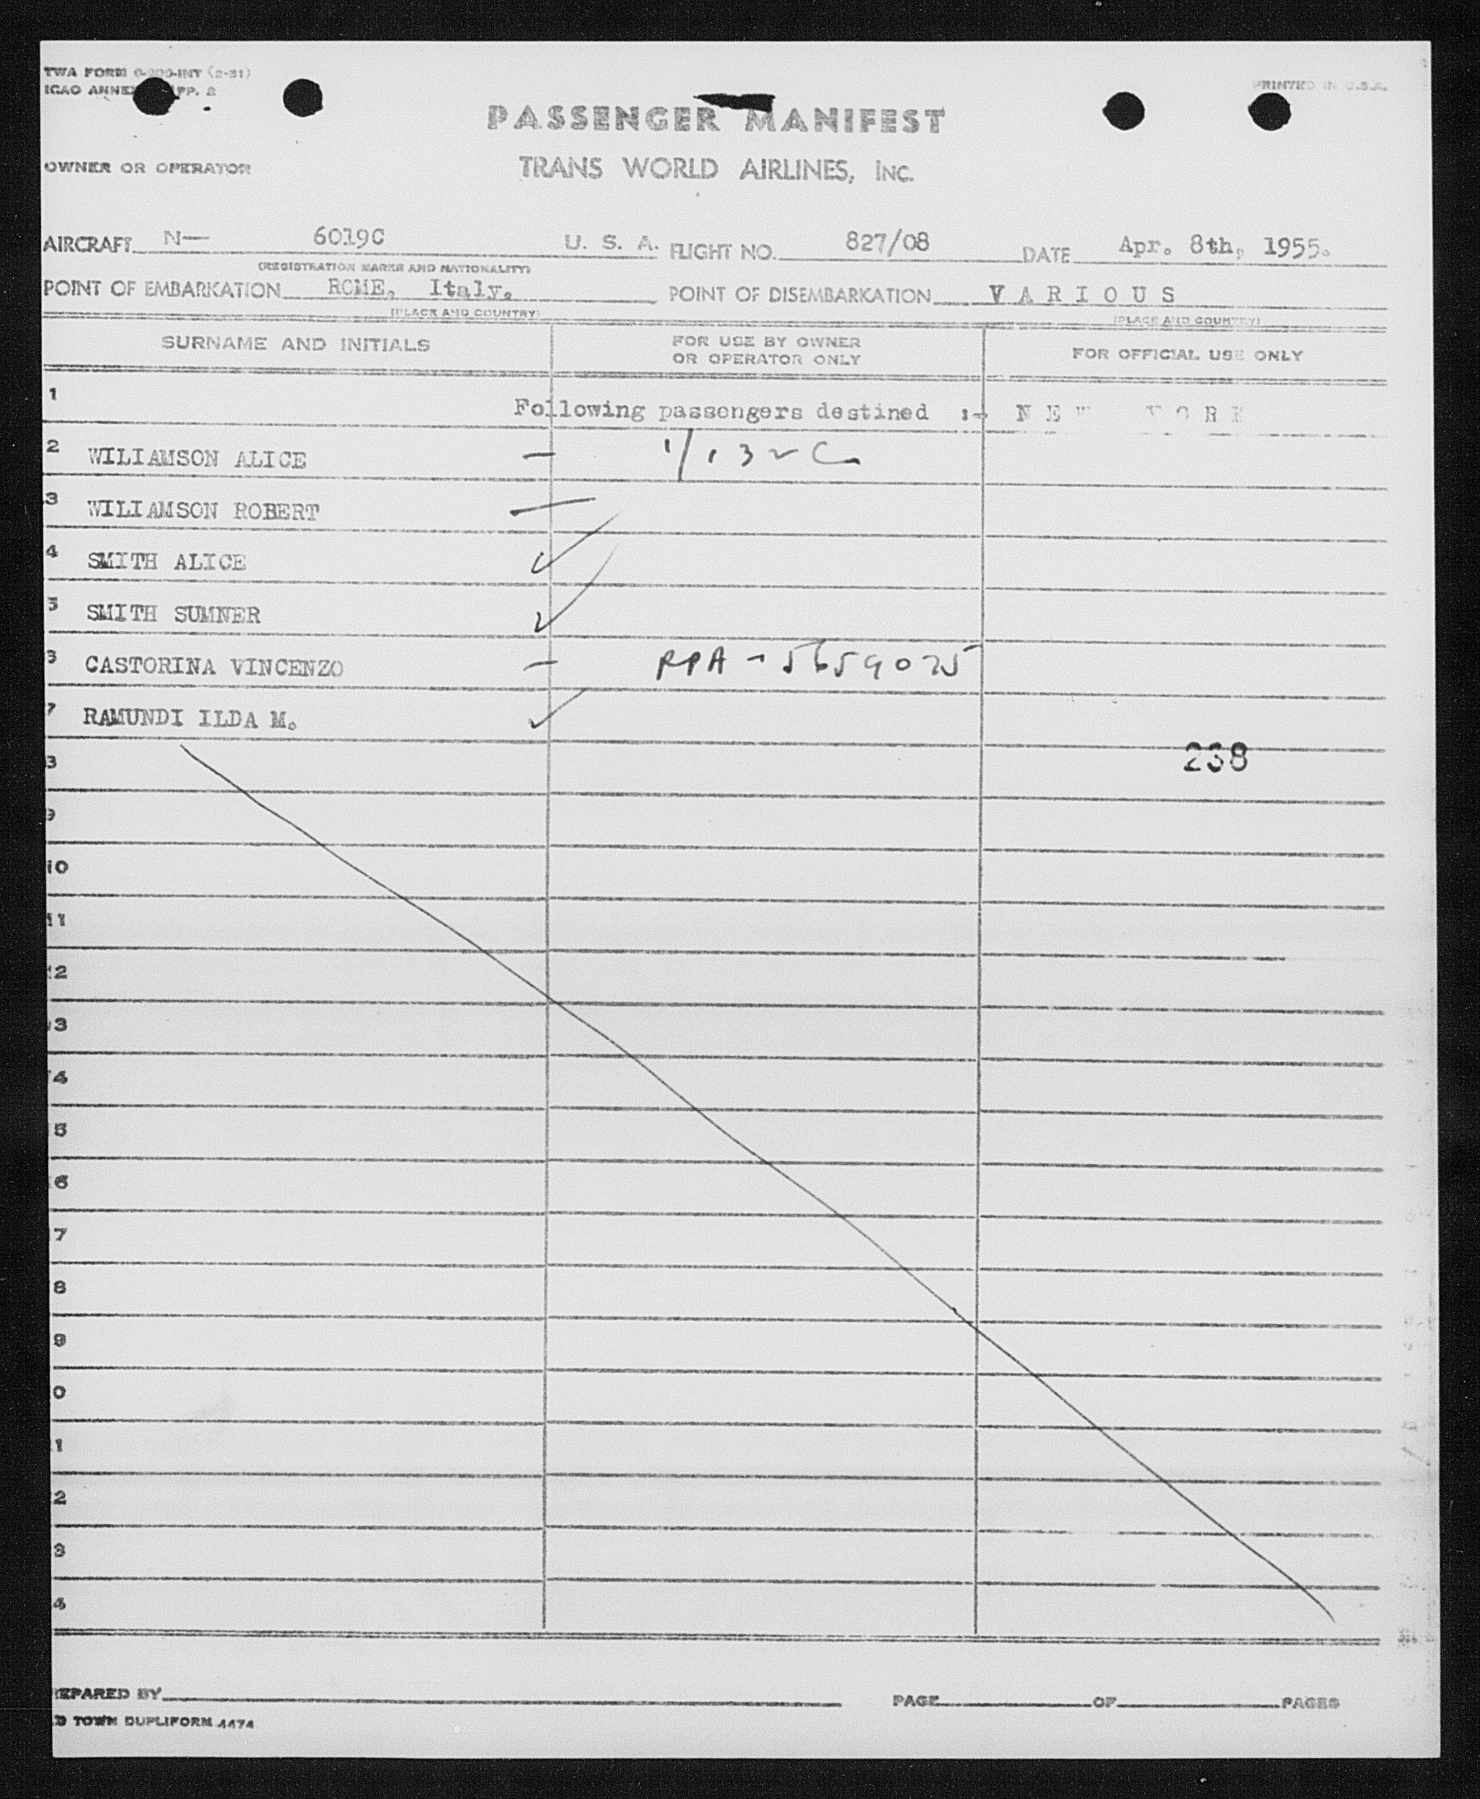 TWA FORM
PRINTED IN U.S.A.
ICAO ANNEX APP. 2
PASSENGER MANIFEST
OWNER OR OPERATOR TRANS WORLD AIRLINES, INC.
AIRCRAFT N— 6019C U. S. A. FLIGHT NO. 827/08 DATE Apr. 8th, 1955.
(REGISTRATION MARKS AND NATIONALITY)
POINT OF EMBARKATION ROME, Italy. POINT OF DISEMBARKATION V A R I O U S
(PLACE AND COUNTRY) (PLACE AND COUNTRY)
SURNAME AND INITIALS FOR USE BY OWNER OR OPERATOR ONLY FOR OFFICIAL USE ONLY
1 Following passengers destined :- N E W Y O R K
2 WILIAMSON ALICE —
3 WILIAMSON ROBERT —
4 SMITH ALICE ✓
5 SMITH SUMNER ✓
CASTORINA VINCENZO — RPA - 5659025
7 RAMUNDI ILDA M. ✓
238
9
10
11
12
3
4
5
6
7
8
9
0
1
2
3
4
PREPARED BY PAGE OF PAGES
TOWN DUPLIFORM 4474